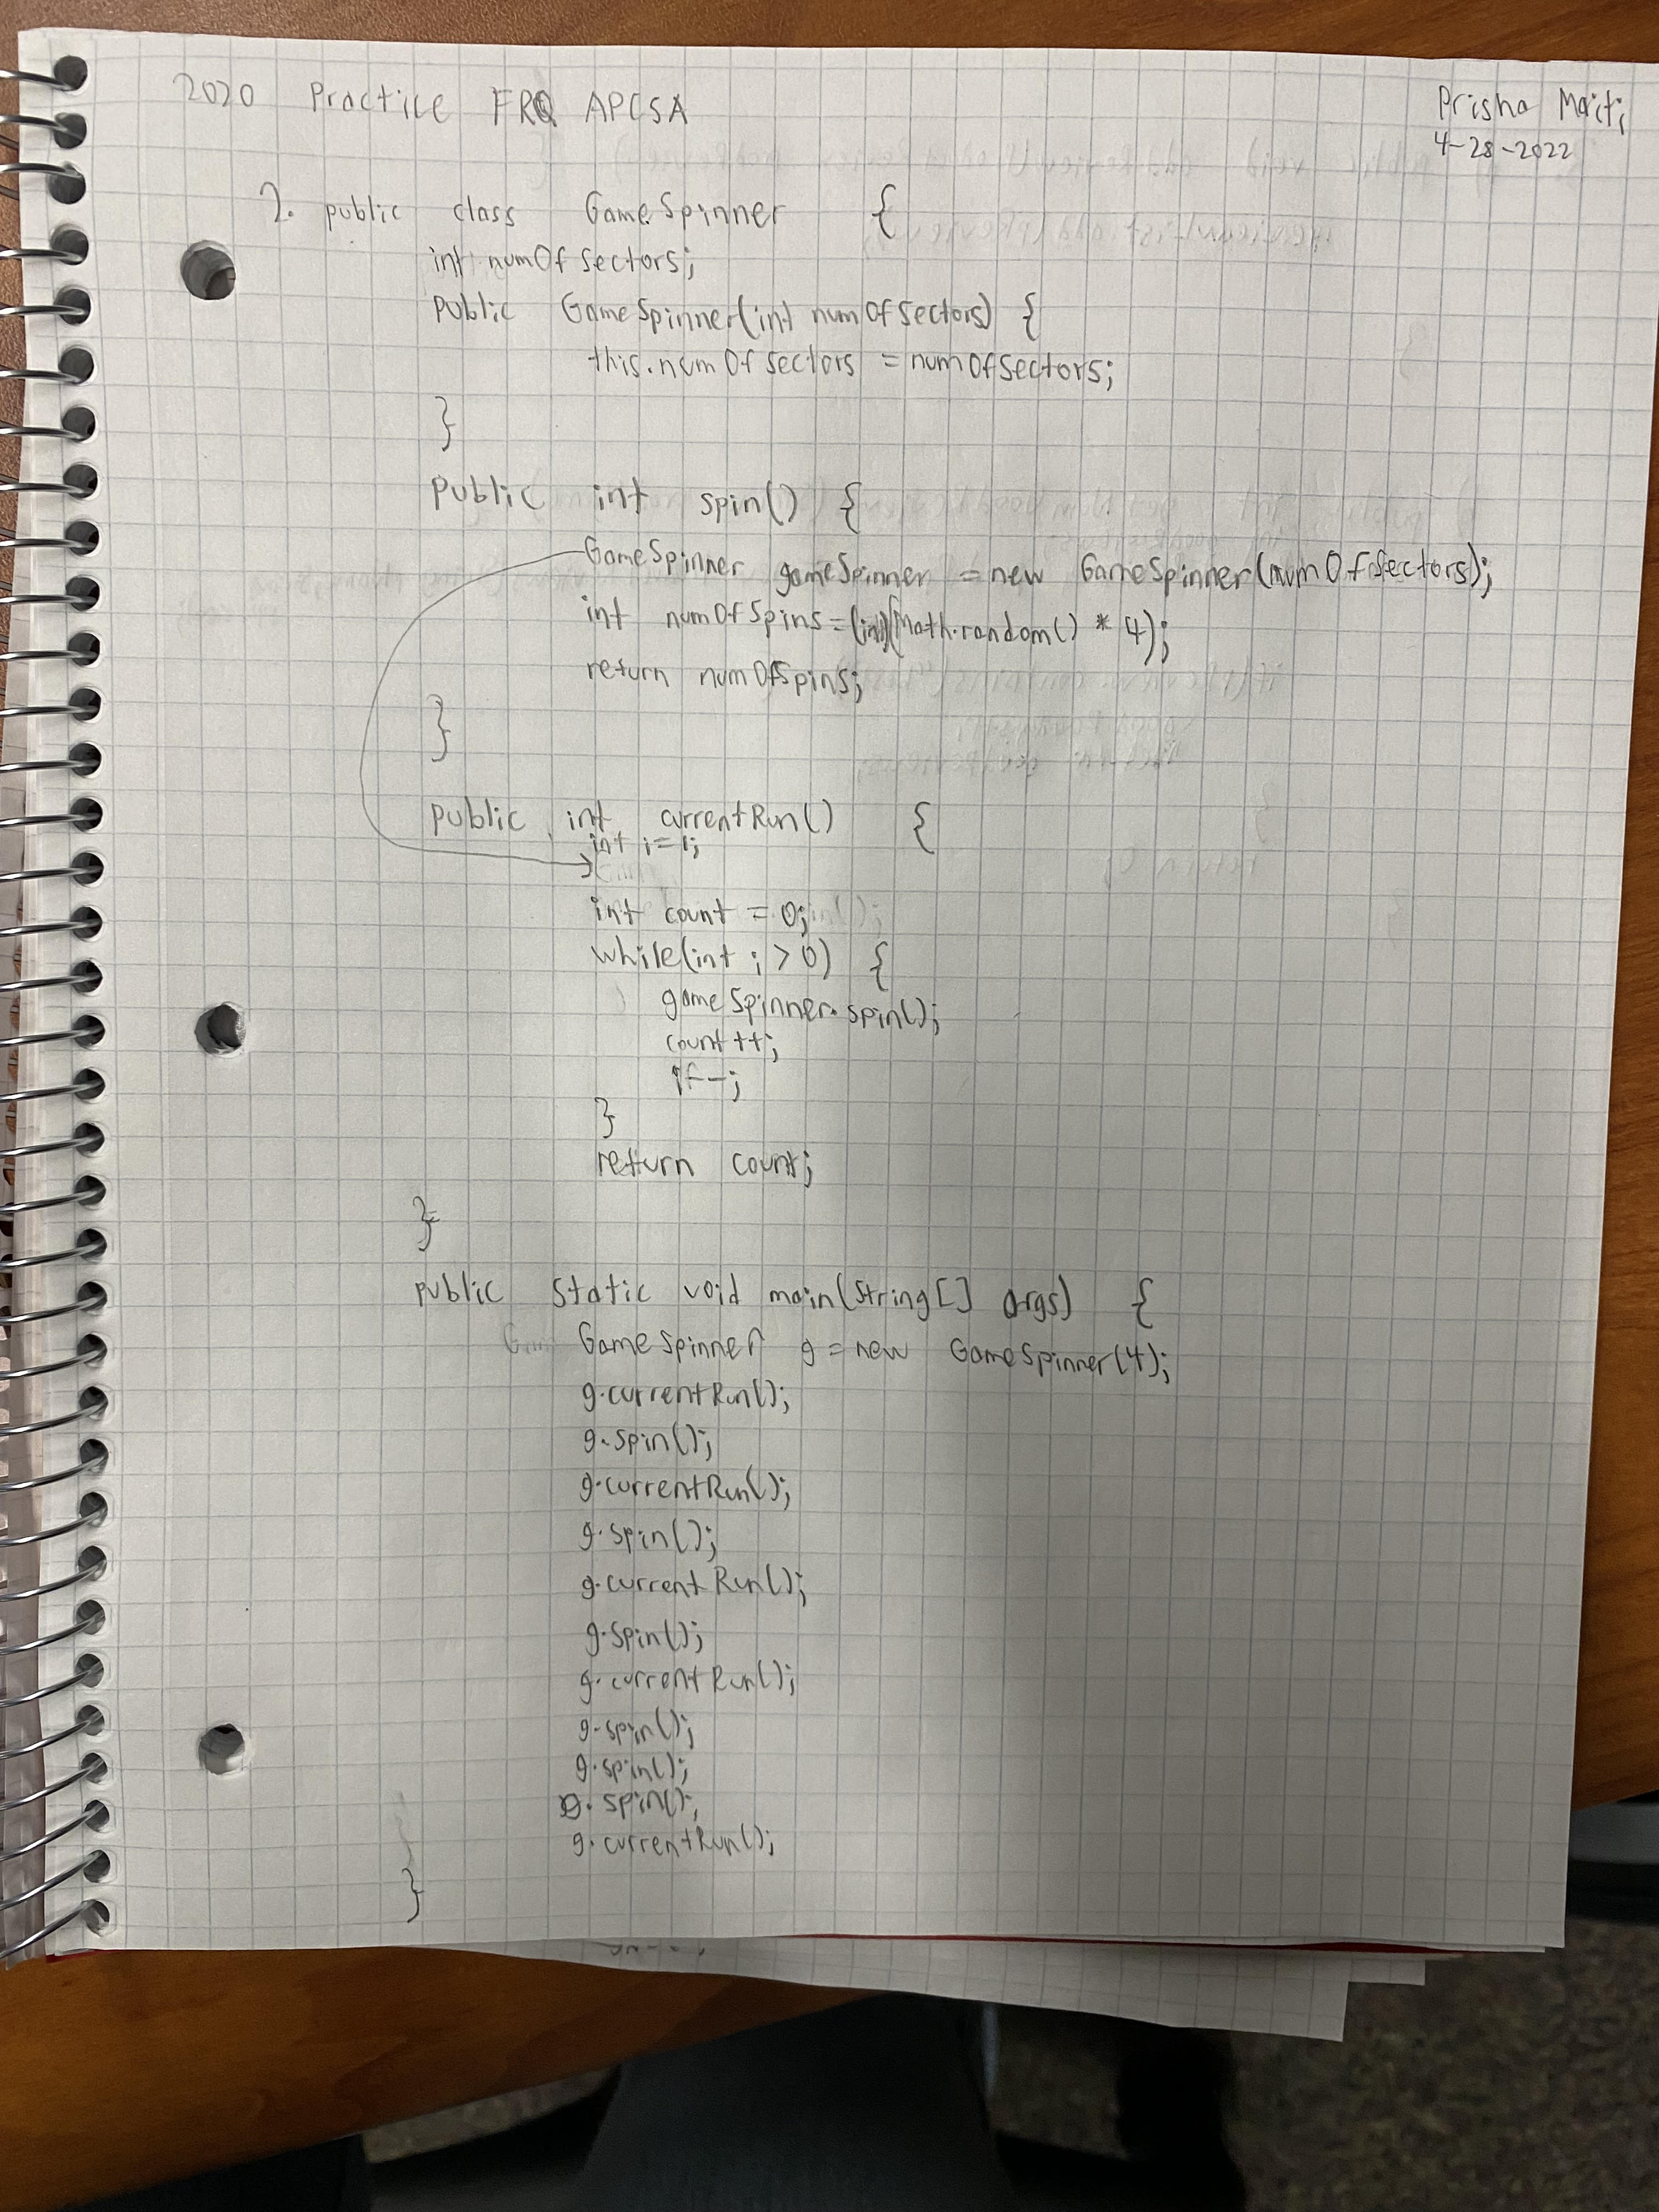 2020 Practice FRQ APCSA
Prisha Maiti
4-28-2022
2. public class GameSpinner {
int numOfSectors;
public GameSpinner(int numOfSectors) {
this.numOfSectors = numOfSectors;
}
public int spin() {
GameSpinner gameSpinner = new GameSpinner(numOfSectors);
int numOfSpins = (int)(Math.random() * 4);
return numOfSpins;
}
public int currentRun() {
int i = 1;
int count = 0;
while(int i > 0) {
gameSpinner.spin();
count++;
}
return count;
}
public static void main(String[] args) {
GameSpinner g = new GameSpinner(4);
g.currentRun();
g.spin();
g.currentRun();
g.spin();
g.currentRun();
g.spin();
g.currentRun();
g.spin();
g.spin();
g.spin();
g.currentRun();
}